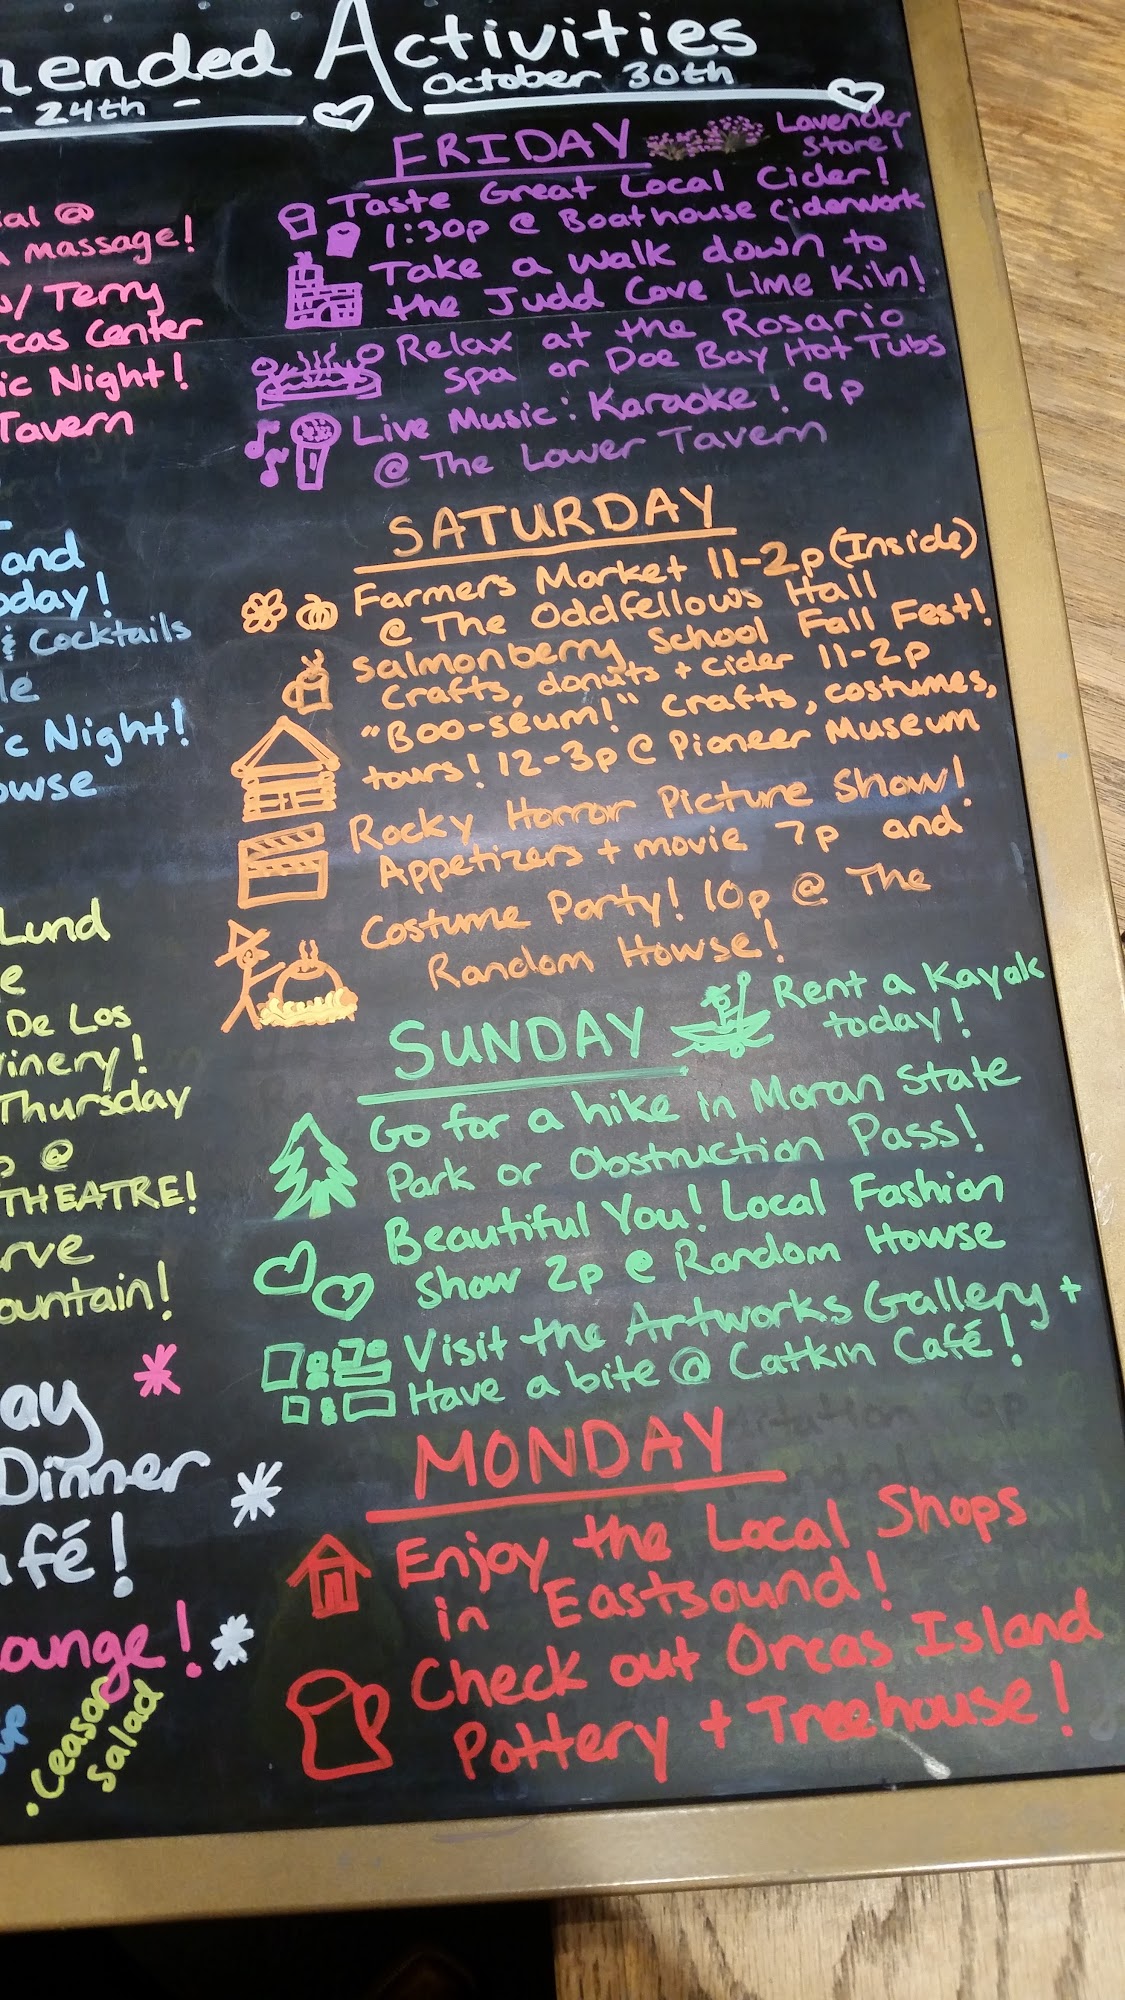 ended Activities
24th - October 30th
ial @
massage!
w/ Terry
rcas Center
ic Night!
Tavern
and
oday!
& Cocktails
le
c Night!
owse
Lund
e
De Los
inery!
Thursday
p @
THEATRE!
rve
ountain!
ay
Dinner
afé!
ounge!
.Ceasar
Salad
FRIDAY
Lavender
Store!
Taste Great Local Cider!
1:30p @ Boathouse Ciderwork
Take a walk down to
the Judd Cove Lime Kiln!
Relax at the Rosario
Spa or Doe Bay Hot Tubs
Live Music: Karaoke! 9p
@ The Lower Tavern
SATURDAY
Farmers Market 11-2p (Inside)
@ The Oddfellows Hall
Salmonberry School Fall Fest!
Crafts, donuts + cider 11-2p
"Boo-seum!" Crafts, costumes,
tours! 12-3p @ Pioneer Museum
Rocky Horror Picture Show!
Appetizers + movie 7p and
Costume Party! 10p @ The
Random Howse!
SUNDAY
Rent a Kayak
today!
Go for a hike in Moran State
Park or Obstruction Pass!
Beautiful You! Local Fashion
Show 2p @ Random Howse
Visit the Artworks Gallery +
Have a bite @ Catkin Café!
MONDAY
Enjoy the Local Shops
in Eastsound!
Check out Orcas Island
Pottery + Treehouse!